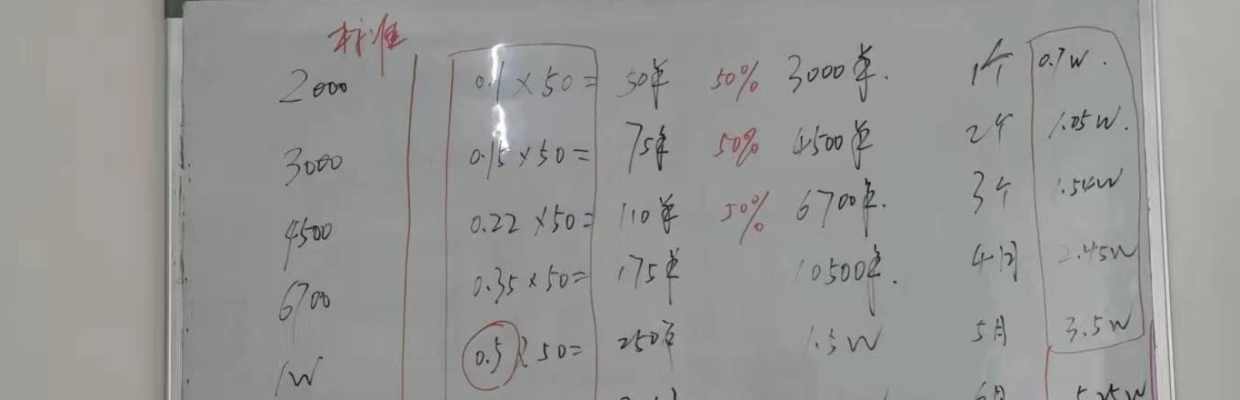 标准
2000 0.1×50= 50单 50% 3000单. 1个 0.7W.
3000 0.15×50= 75单 50% 4500单 2个 1.05W.
4500 0.22×50= 110单 50% 6700单. 3个 1.54W
6700 0.35×50= 175单 10500单. 4个月 2.45W
1W 0.5 50= 250单 1.5W 5月 3.5W
6月 5.25W